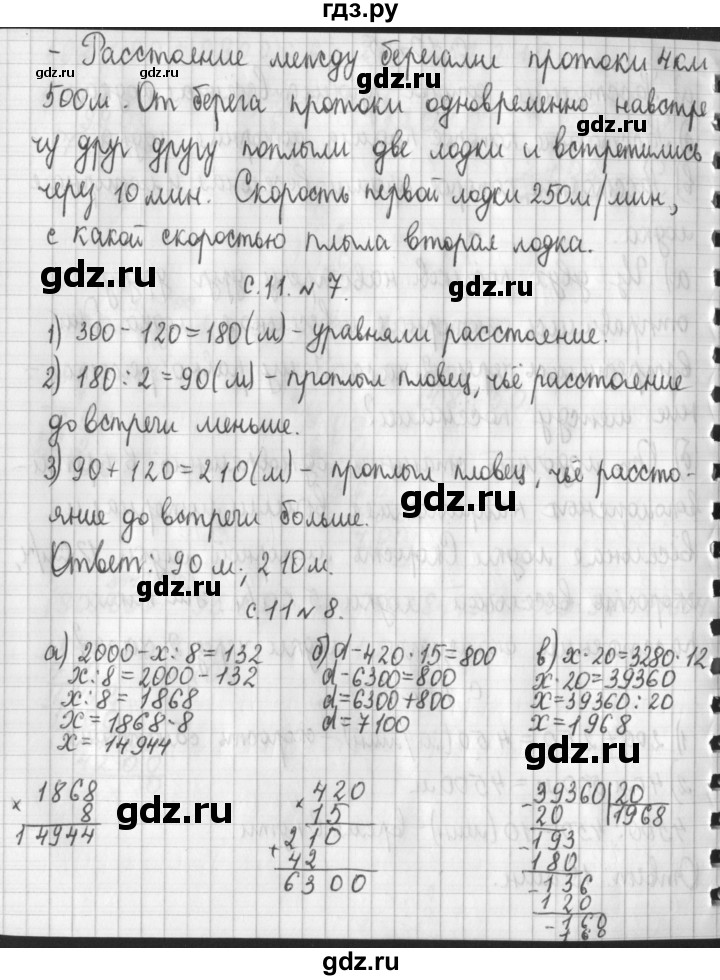 гдз.ру
- Расстояние между берегами протоки 4 км
gdz.ru gdz.ru gdz.ru
500 м. От берега протоки одновременно навстре
gdz.ru
чу друг другу поплыли две лодки и встретились
через 10 мин. Скорость первой лодки 250 м/мин,
с какой скоростью плыла вторая лодка.
gdz.ru gdz.ru
с. 11. № 7.
1) 300 - 120 = 180 (м) - уравняли расстояние.
2) 180 : 2 = 90 (м) - проплыл пловец, чьё расстояние
до встречи меньше.
3) 90 + 120 = 210 (м) - проплыл пловец, чьё рассто-
gdz.ru
яние до встречи больше.
Ответ: 90 м; 210 м.
gdz.ru
с. 11 № 8.
gdz.ru
а) 2000 - x : 8 = 132
x : 8 = 2000 - 132
x : 8 = 1868
x = 1868 · 8
x = 14944
б) d - 420 · 15 = 800
d - 6300 = 800
d = 6300 + 800
d = 7100
в) x · 20 = 3280 · 12
x · 20 = 39360
x = 39360 : 20
x = 1968
gdz.ru gdz.ru
× 1868
8
14944
× 420
15
210
+ 42
6300
- 39360 | 20
20 1968
- 193
180
- 136
120
- 168
168
gdz.ru gdz.ru